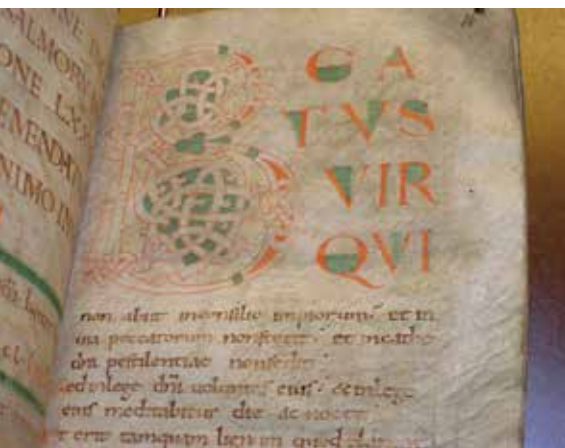 NE
SALMORV
ONE LXX
EVENDA
NIMO IN
B EA
TVS
VIR
QVI
non abiit inconsilio impiorum et in
uia peccatorum nonstetit et incathe
dra pestilentiae nonsedit
sed inlege dni uoluntas eius et inlege
eius meditabitur die ac nocte
et erit tamquam lignum quod plantatum